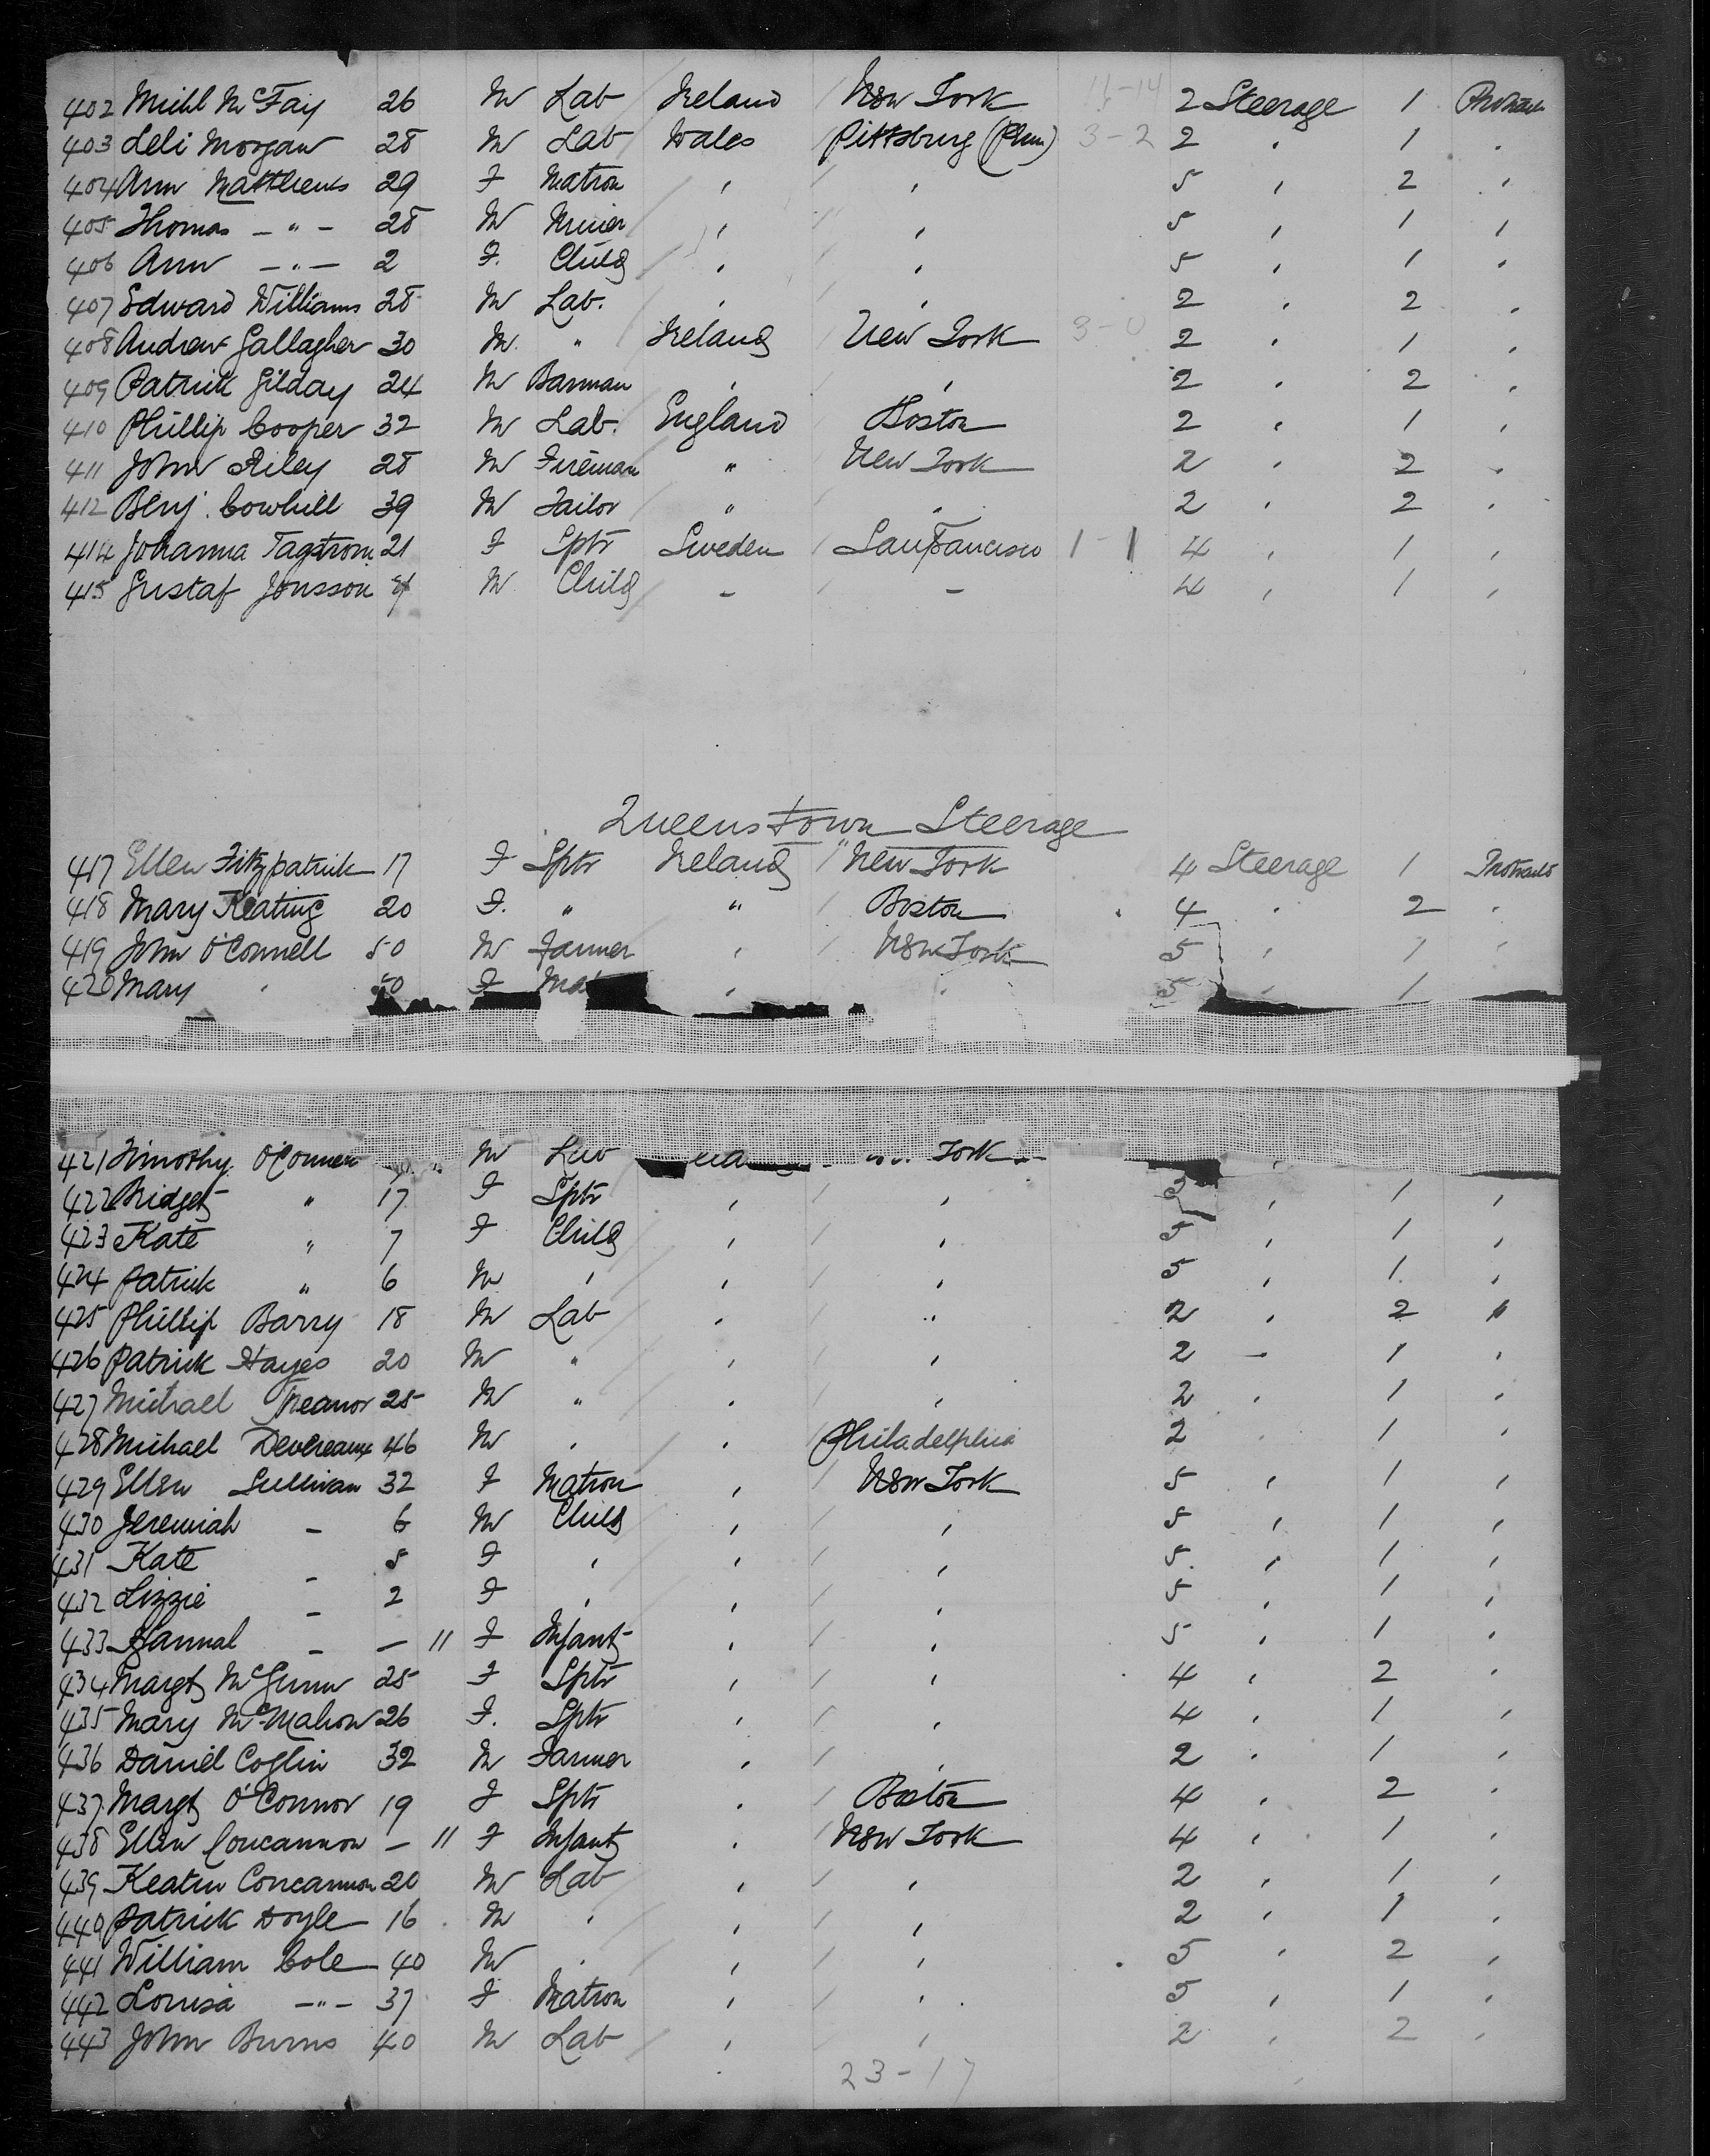 11-14
402 Michl McFay 26 M Lab Ireland New York 2 Steerage 1 Protracted
403 Leli Morgan 28 M Lab Wales Pittsburg (Penn) 3-2 2 , 1 ,
404 Ann Matthews 29 F Matron , , 5 , 2 ,
405 Thomas -"- 28 M Miner , , 5 , 1 ,
406 Ann -"- 2 F. Child , , 5 , 1 ,
407 Edward Williams 28 M Lab. , , 2 , 2 ,
408 Andrew Gallagher 30 M. " Ireland New York 3-0 2 , 1 ,
409 Patrick Gilday 24 M Barman , , 2 , 2 ,
410 Phillip Cooper 32 M Lab. England Boston 2 , 1 ,
411 John Riley 28 M Fireman " New York 2 , 2 ,
412 Benj. Cowhill 39 M Tailor " , 2 , 2 ,
414 Johanna Tagstrom 21 F Sptr Sweden San Francisco 1-1 4 , 1 ,
415 Gustaf Jonsson M Child - - 4 , 1 ,
Queenstown Steerage
417 Ellen Fitzpatrick 17 F Sptr Ireland New York 4 Steerage 1
418 Mary Keating 20 F. " " Boston 4 , 2 ,
419 John O'Connell 50 M Farmer , New York 5 , 1 ,
420 Mary , 50 F Mat , , 5 , 1
421 Timothy O'Conner M Lab York
422 Bridget " 17 F Sptr , , 5 , 1 ,
423 Kate " 7 F Child , , 5 , 1 ,
424 Patrick " 6 M , , , 5 , 1 ,
425 Phillip Barry 18 M Lab , " 2 , 2 "
426 Patrick Hayes 20 M " , , 2 - 1 ,
427 Michael Treanor 25 M " , , 2 , 1 ,
428 Michael Devereaux 46 M , , Philadelphia 2 , 1 ,
429 Ellen Sullivan 32 F Matron , New York 5 , 1 ,
430 Jeremiah - 6 M Child , , 5 , 1 ,
431 Kate - 5 F , , , 5 , 1 ,
432 Lizzie - 2 F , , , 5 , 1 ,
433 Hannah - - 11 F Infant , , 5 , 1 ,
434 Margt McGunn 25 F Sptr , , 4 , 2 ,
435 Mary McMahon 26 F. Sptr , , 4 , 1 ,
436 Daniel Coglin 32 M Farmer , , 2 , 1 ,
437 Margt O'Connor 19 F Sptr , Boston 4 , 2 ,
438 Ellen Concannon - 11 F Infant , New York 4 , 1 ,
439 Keatin Concannon 20 M Lab , , 2 , 1 ,
440 Patrick Doyle 16 M , , , 2 , 1 ,
441 William Cole 40 M , , , 5 , 2 ,
442 Louisa -"- 37 F Matron , , 5 , 1 ,
443 John Burns 40 M Lab , , 2 , 2 ,
23-17